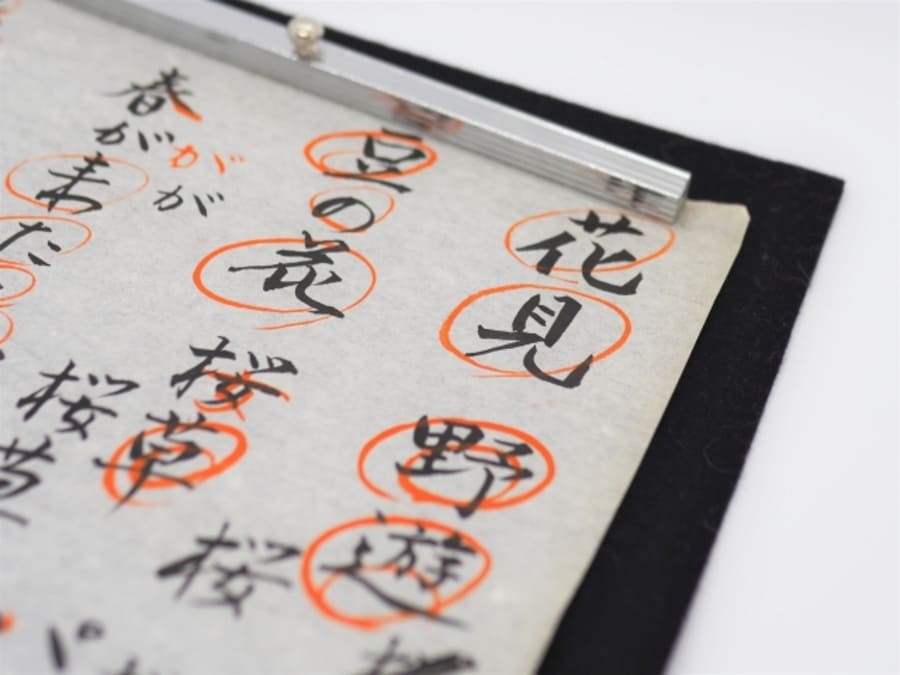 花見
野遊
豆の花
桜草
桜
春が来た
が
が
桜草